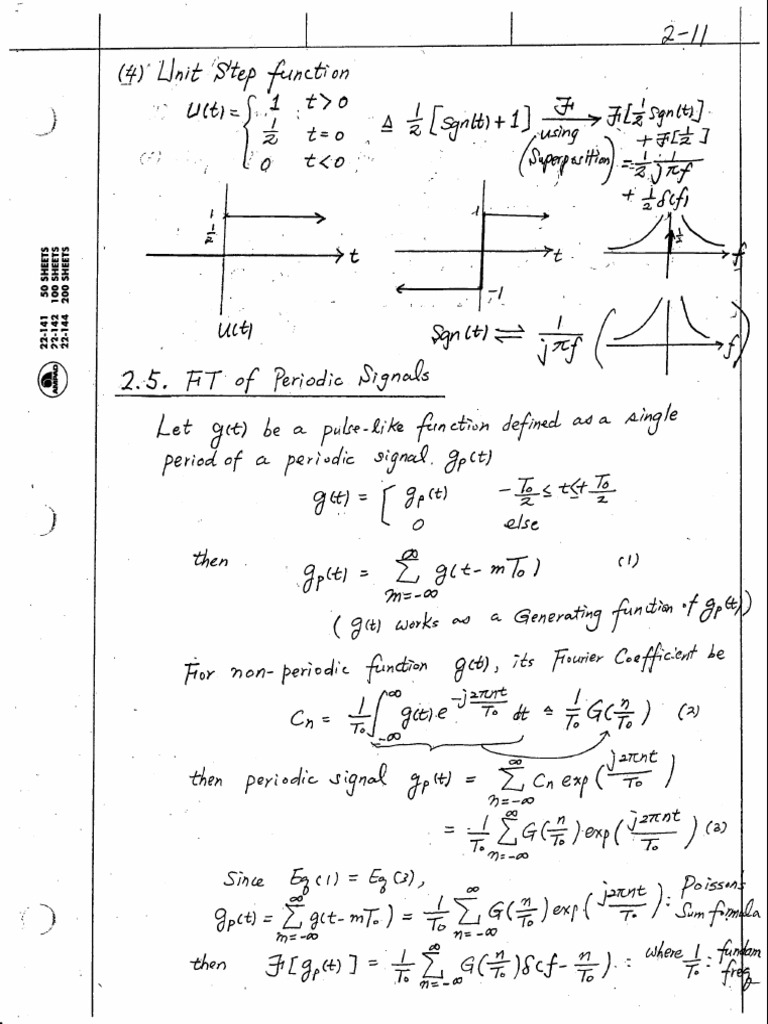 2-11
(4) Unit Step function
U(t) = { 1 t>0
1/2 t=0
0 t<0
≜ 1/2 [Sgn(t)+1] F→ using (Superposition) F[1/2 Sgn(t)]
+ F[1/2]
= 1/2 1/jπf
+ 1/2 δ(f)
1
1/2
t
U(t)
1
t
-1
1/2
f
Sgn(t) ⇌ 1/jπf ( f )
22-141 50 SHEETS
22-142 100 SHEETS
22-144 200 SHEETS
AMPAD
2.5. FT of Periodic Signals
Let g(t) be a pulse-like function defined as a single
period of a periodic signal. gp(t)
g(t) = [ gp(t) -T₀/2 ≤ t ≤ +T₀/2
0 else
then gp(t) = ∑_{m=-∞}^{∞} g(t-mT₀) (1)
(g(t) works as a Generating function of gp(t))
For non-periodic function g(t), its Fourier Coefficient be
Cn = 1/T₀ ∫_{-∞}^{∞} g(t) e^{-j2πnt/T₀} dt ≜ 1/T₀ G(n/T₀) (2)
then periodic signal gp(t) = ∑_{n=-∞}^{∞} Cn exp(j2πnt/T₀)
= 1/T₀ ∑_{n=-∞}^{∞} G(n/T₀) exp(j2πnt/T₀) (3)
Since Eq(1) = Eq(3),
gp(t) = ∑_{m=-∞}^{∞} g(t-mT₀) = 1/T₀ ∑_{n=-∞}^{∞} G(n/T₀) exp(j2πnt/T₀) : Poisson's
Sum formula
then F[gp(t)] = 1/T₀ ∑_{n=-∞}^{∞} G(n/T₀) δ(f-n/T₀) : where 1/T₀ : fundam
freq